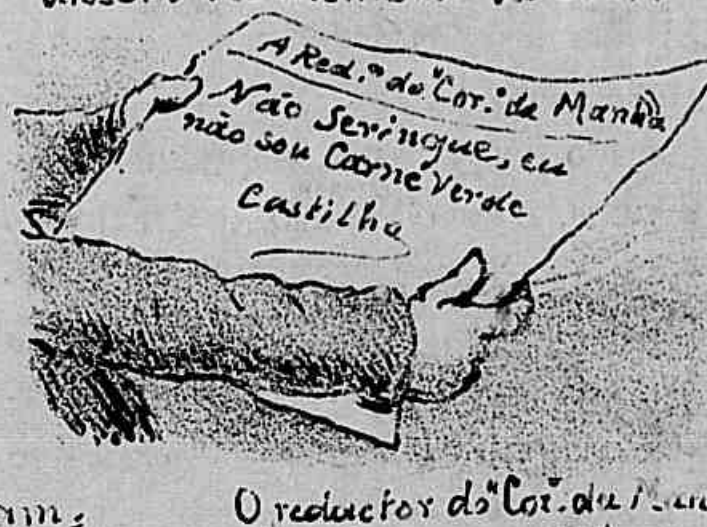 A Red.ᵐ do "Cor.º da Manhã"
Não Seringue, eu
não sou Carne Verde
Castilho
O reductor do "Cor. da